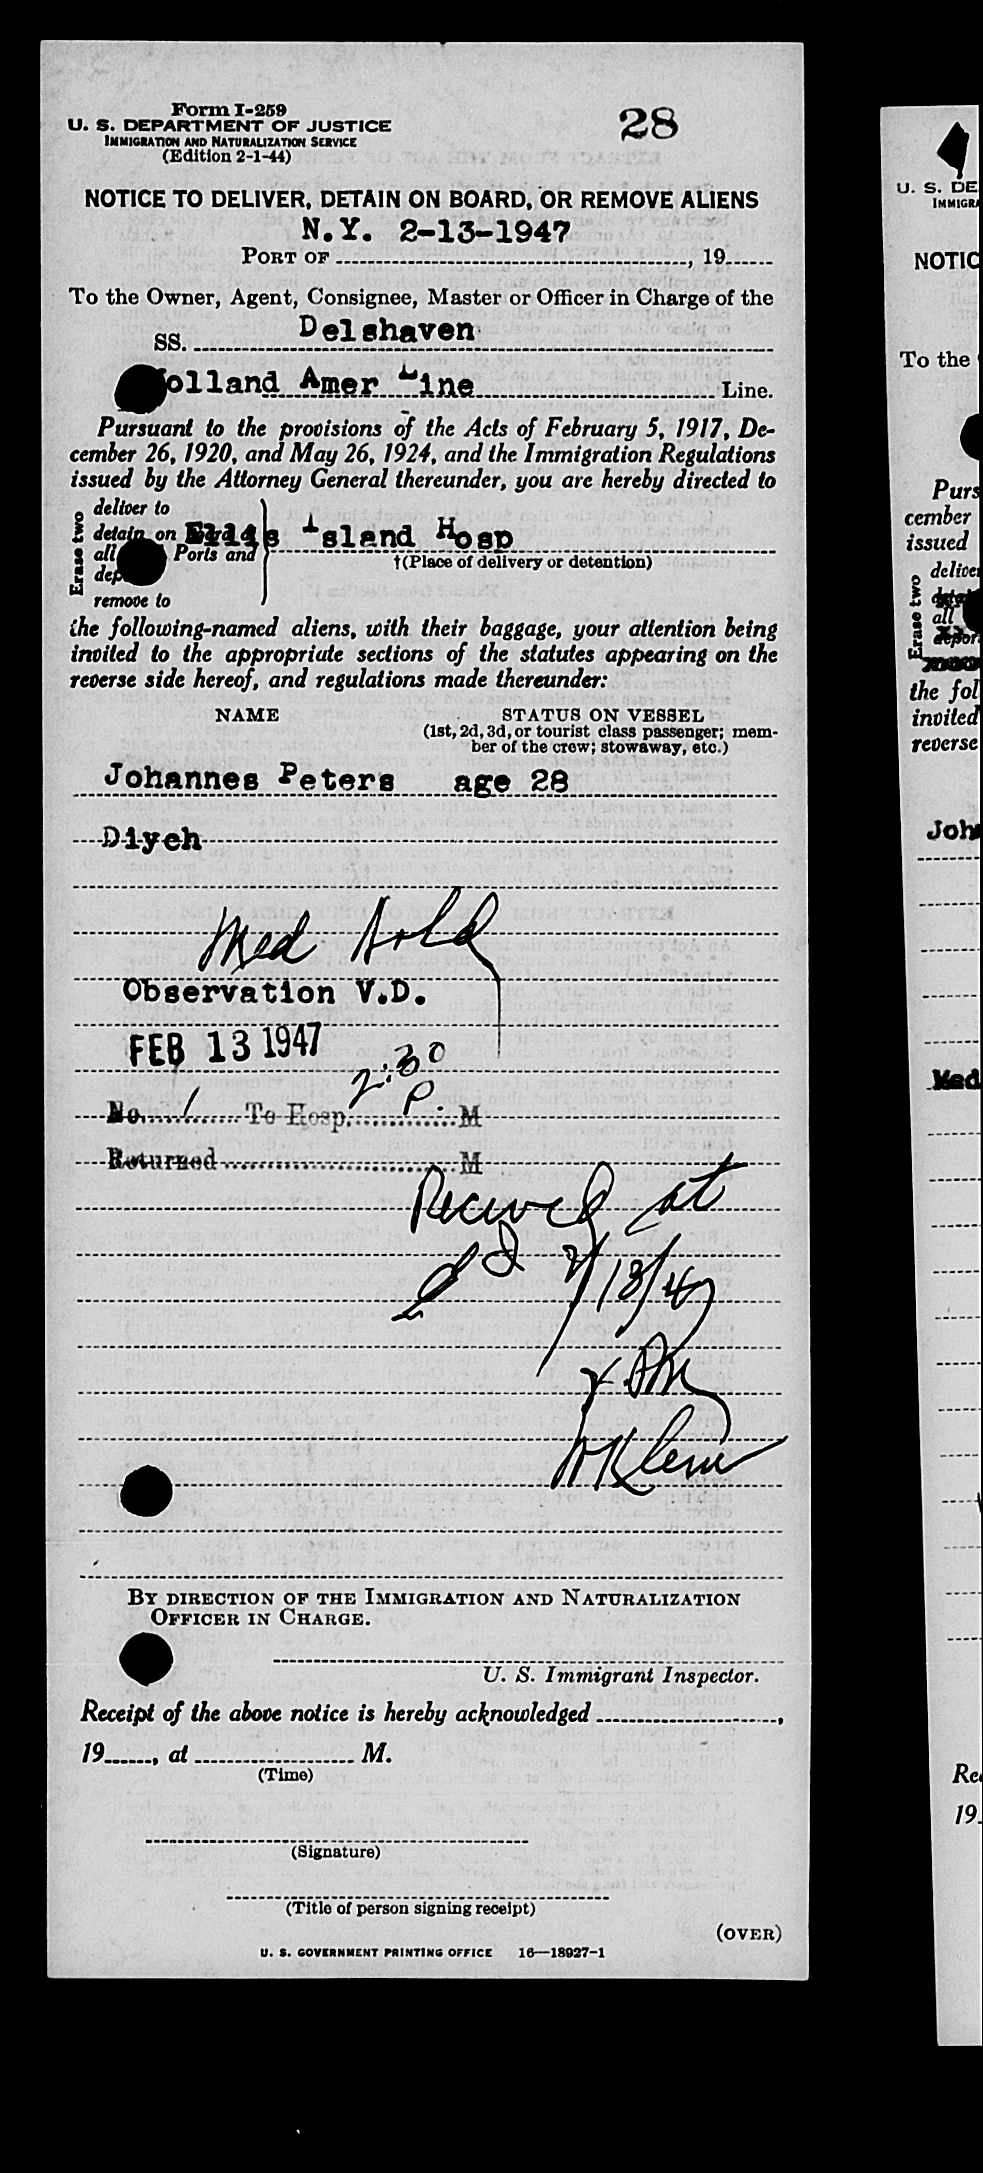 Form I-259
28
U. S. DEPARTMENT OF JUSTICE
IMMIGRATION AND NATURALIZATION SERVICE
(Edition 2-1-44)
NOTICE TO DELIVER, DETAIN ON BOARD, OR REMOVE ALIENS
N.Y. 2-13-1947
PORT OF , 19
To the Owner, Agent, Consignee, Master or Officer in Charge of the
SS. Delshaven
olland Amer Line Line.
Pursuant to the provisions of the Acts of February 5, 1917, De-
cember 26, 1920, and May 26, 1924, and the Immigration Regulations
issued by the Attorney General thereunder, you are hereby directed to
Erase two
deliver to
detain on
all Ports and
dep
remove to
Ellis Island Hosp
†(Place of delivery or detention)
the following-named aliens, with their baggage, your attention being
invited to the appropriate sections of the statutes appearing on the
reverse side hereof, and regulations made thereunder:
NAME STATUS ON VESSEL
(1st, 2d, 3d, or tourist class passenger; mem-
ber of the crew; stowaway, etc.)
Johannes Peters age 28
Diych
Med Hold
Observation V.D.
FEB 13 1947
2:30
No. 1 To Hosp. P. M
Returned M
Received at
2/13/47
Klein
BY DIRECTION OF THE IMMIGRATION AND NATURALIZATION
OFFICER IN CHARGE.
U. S. Immigrant Inspector.
Receipt of the above notice is hereby acknowledged ,
19 , at M.
(Time)
(Signature)
(Title of person signing receipt)
(OVER)
U. S. GOVERNMENT PRINTING OFFICE 16—18927-1
U. S. DE
IMMIGRA
NOTIC
To the
Purs
cember
issued
Erase two
deliver
all
depor
the fol
invited
reverse
Joh
Med
Rec
19